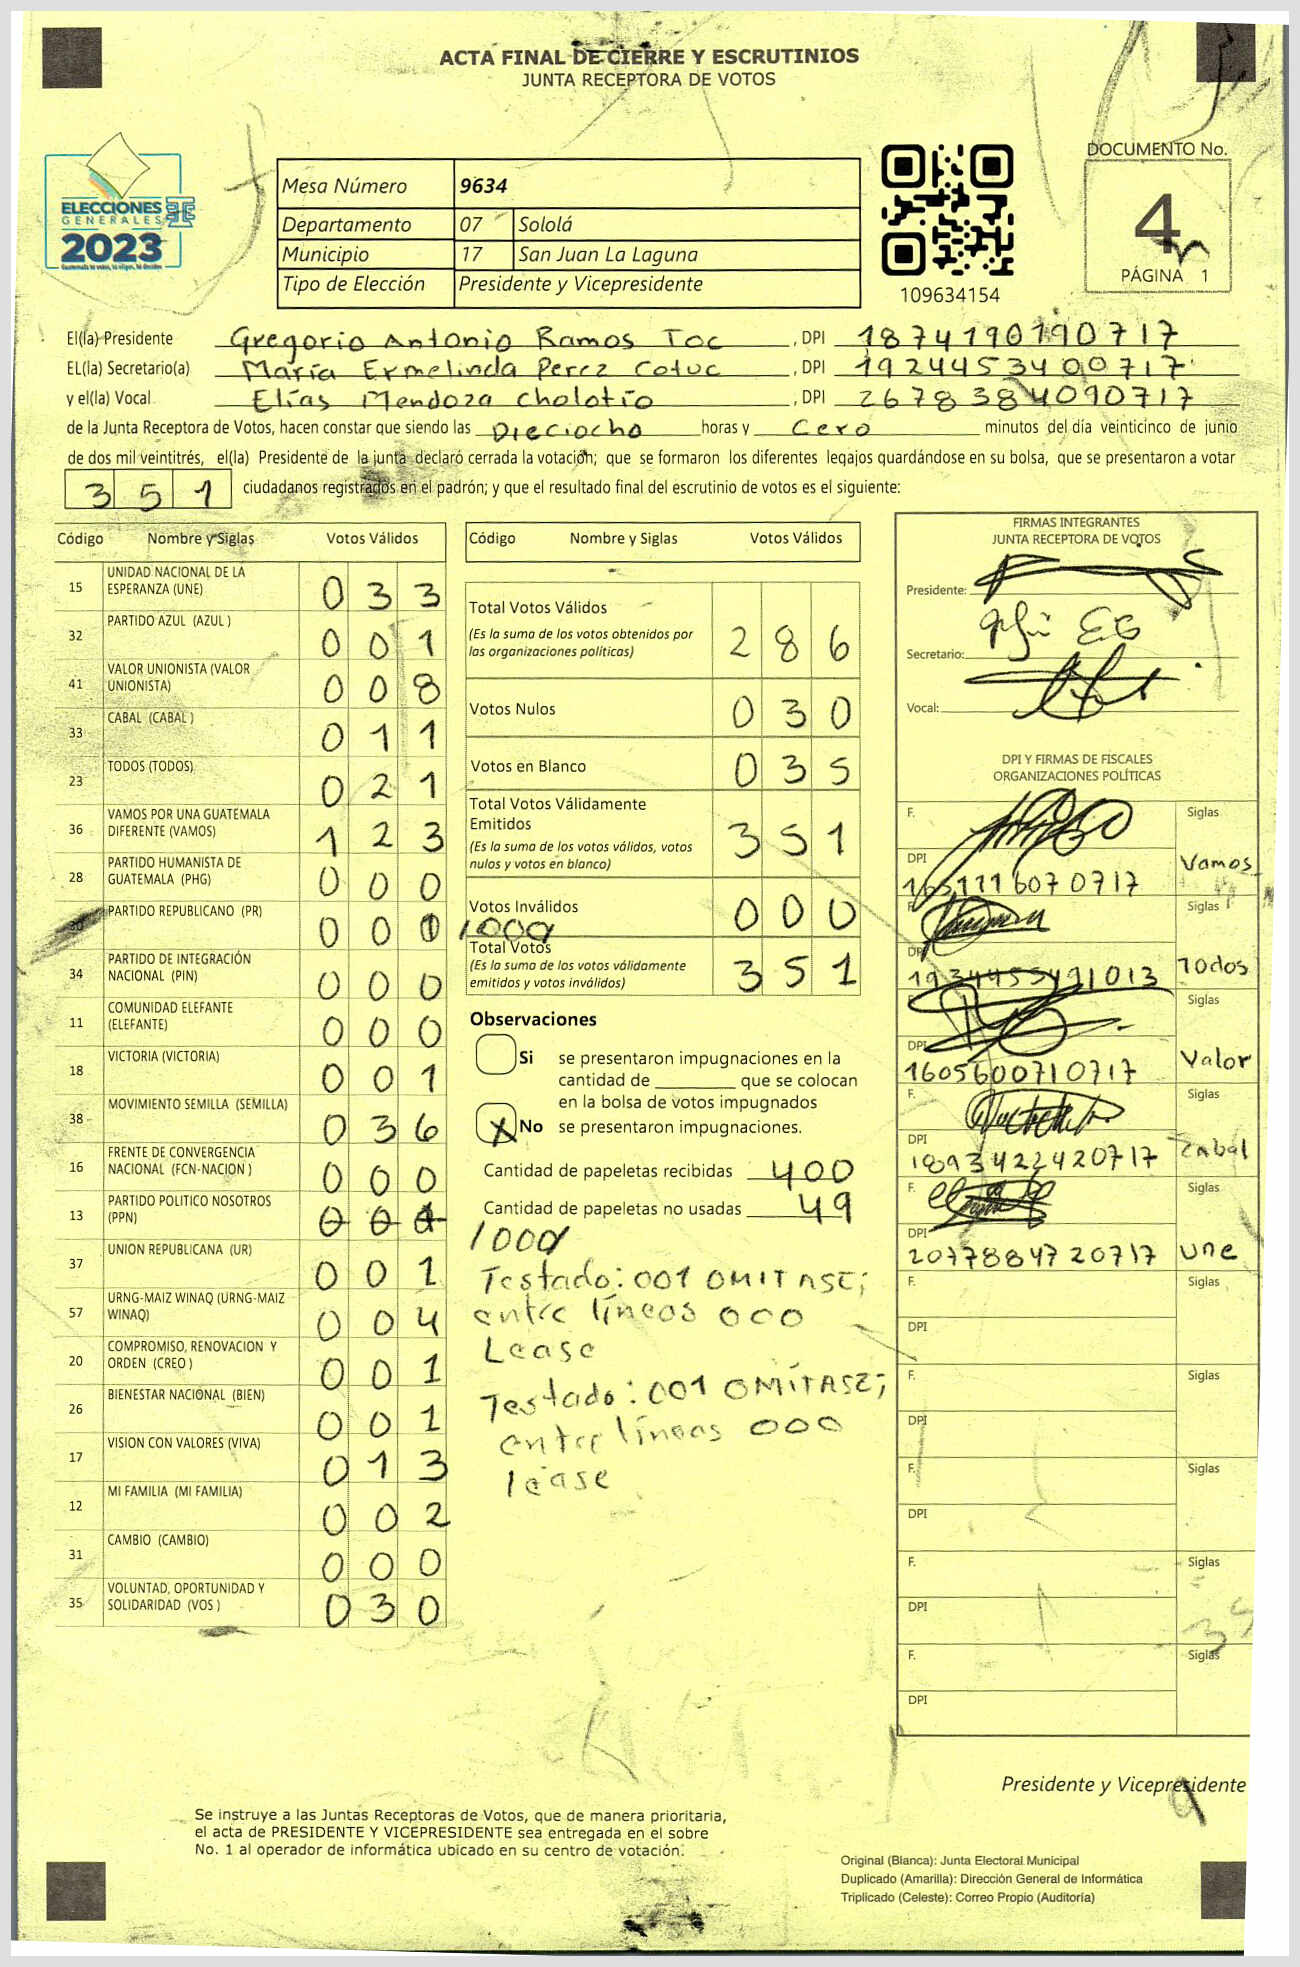 ACTA FINAL DE CIERRE Y ESCRUTINIOS
JUNTA RECEPTORA DE VOTOS
ELECCIONES
GENERALES
2023
Mesa Número 9634
Departamento 07 Sololá
Municipio 17 San Juan La Laguna
Tipo de Elección Presidente y Vicepresidente
109634154
DOCUMENTO No.
4
PÁGINA 1
El(la) Presidente Gregorio Antonio Ramos Toc , DPI 1874190190717
EL(la) Secretario(a) María Ermelinda Perez Cotuc , DPI 1924453400717
y el(la) Vocal Elías Mendoza Cholotío , DPI 2678384090717
de la Junta Receptora de Votos, hacen constar que siendo las Dieciocho horas y Cero minutos del día veinticinco de junio
de dos mil veintitrés, el(la) Presidente de la junta declaró cerrada la votación; que se formaron los diferentes legajos guardándose en su bolsa, que se presentaron a votar
351 ciudadanos registrados en el padrón; y que el resultado final del escrutinio de votos es el siguiente:
Código Nombre y Siglas Votos Válidos
15 UNIDAD NACIONAL DE LA ESPERANZA (UNE) 033
32 PARTIDO AZUL (AZUL ) 001
41 VALOR UNIONISTA (VALOR UNIONISTA) 008
33 CABAL (CABAL ) 011
23 TODOS (TODOS) 021
36 VAMOS POR UNA GUATEMALA DIFERENTE (VAMOS) 123
28 PARTIDO HUMANISTA DE GUATEMALA (PHG) 000
30 PARTIDO REPUBLICANO (PR) 00 /000/
34 PARTIDO DE INTEGRACIÓN NACIONAL (PIN) 000
11 COMUNIDAD ELEFANTE (ELEFANTE) 000
18 VICTORIA (VICTORIA) 001
38 MOVIMIENTO SEMILLA (SEMILLA) 036
16 FRENTE DE CONVERGENCIA NACIONAL (FCN-NACION ) 000
13 PARTIDO POLITICO NOSOTROS (PPN) 001 /000/
37 UNION REPUBLICANA (UR) 001
57 URNG-MAIZ WINAQ (URNG-MAIZ WINAQ) 004
20 COMPROMISO, RENOVACION Y ORDEN (CREO ) 001
26 BIENESTAR NACIONAL (BIEN) 001
17 VISION CON VALORES (VIVA) 013
12 MI FAMILIA (MI FAMILIA) 002
31 CAMBIO (CAMBIO) 000
35 VOLUNTAD, OPORTUNIDAD Y SOLIDARIDAD (VOS ) 030
Código Nombre y Siglas Votos Válidos
Total Votos Válidos 286
(Es la suma de los votos obtenidos por
las organizaciones políticas)
Votos Nulos 030
Votos en Blanco 035
Total Votos Válidamente
Emitidos 351
(Es la suma de los votos válidos, votos
nulos y votos en blanco)
Votos Inválidos 000
Total Votos 351
(Es la suma de los votos válidamente
emitidos y votos inválidos)
Observaciones
Si se presentaron impugnaciones en la
cantidad de ________ que se colocan
en la bolsa de votos impugnados
X No se presentaron impugnaciones.
Cantidad de papeletas recibidas 400
Cantidad de papeletas no usadas 49
Testado: 001 OMITASE;
entre líneas 000
Lease
Testado: 001 OMÍTASE;
entre líneas 000
lease
FIRMAS INTEGRANTES
JUNTA RECEPTORA DE VOTOS
Presidente:
Secretario:
Vocal:
DPI Y FIRMAS DE FISCALES
ORGANIZACIONES POLÍTICAS
F. Siglas
DPI Vamos
F. Siglas
DPI 1934455491013 Todos
F. Siglas
DPI 1605600710717 Valor
F. Siglas
DPI 1893422420717 Cabal
F. Siglas
DPI 2077884720717 Une
F. Siglas
DPI
F. Siglas
DPI
F. Siglas
DPI
F. Siglas
DPI
F. Siglas
DPI
Presidente y Vicepresidente
Se instruye a las Juntas Receptoras de Votos, que de manera prioritaria,
el acta de PRESIDENTE Y VICEPRESIDENTE sea entregada en el sobre
No. 1 al operador de informática ubicado en su centro de votación.
Original (Blanca): Junta Electoral Municipal
Duplicado (Amarilla): Dirección General de Informática
Triplicado (Celeste): Correo Propio (Auditoría)